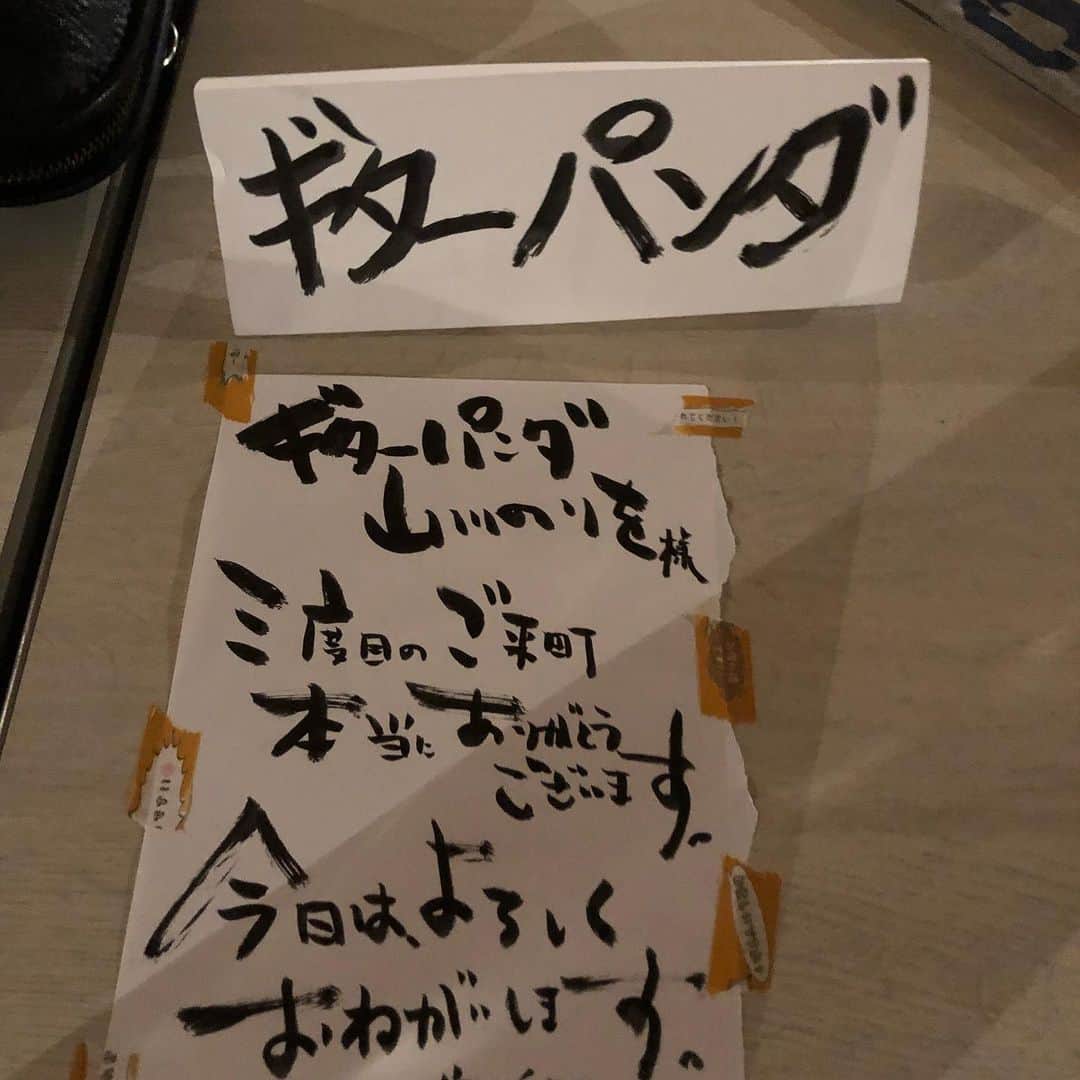 ギターパンダ
ギターパンダ
山川のりを様
三度目のご来町
本当にありがとう
ございます。
今日は、よろしく
おねがいします。
れてください！